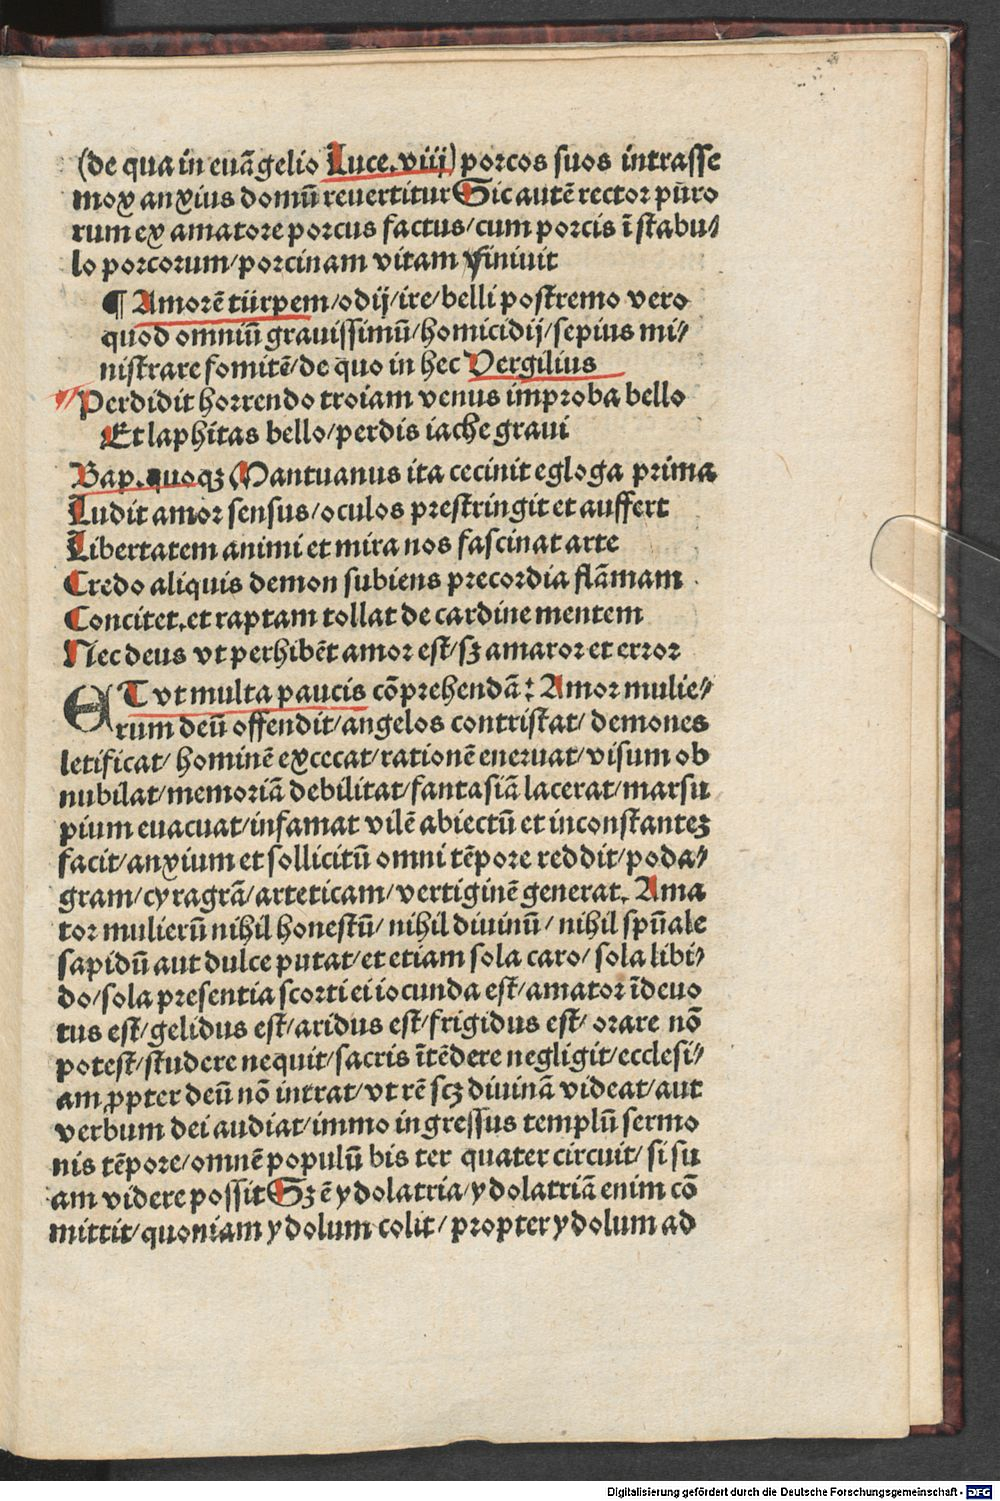 (de qua in euãgelio Luce.viij) porcos suos intrasse
mox anxius domũ reuertitur Sic autẽ rector pũro
rum ex amatore porcus factus/cum porcis ĩ stabu⸗
lo porcorum/porcinam vitam finiuit
¶ Amorẽ türpem/odij/ire/belli postremo vero
quod omniũ grauissimũ/homicidij/sepius mi⸗
nistrare fomitẽ/de quo in hec Vergilius
Perdidit horrendo troiam venus improba bello
Et laphitas bello/perdis iache graui
Bap. quoqꝫ Mantuanus ita cecinit egloga prima
Ludit amor sensus/oculos prestringit et auffert
Libertatem animi et mira nos fascinat arte
Credo aliquis demon subiens precordia flãmam
Concitet.et raptam tollat de cardine mentem
Nec deus vt perhibẽt amor est/sꝫ amaror et error
ET vt multa paucis cõprehendã: Amor mulie⸗
rum deũ offendit/angelos contristat/demones
letificat/hominẽ excecat/rationẽ eneruat/visum ob
nubilat/memoriã debilitat/fantasiã lacerat/marsu
pium euacuat/infamat vilẽ abiectũ et inconstanteꝫ
facit/anxium et sollicitũ omni tẽpore reddit/poda⸗
gram/cyragrã/arteticam/vertiginẽ generat. Ama
tor mulierũ nihil honestũ/nihil diuinũ/nihil spũale
sapidũ aut dulce putat/et etiam sola caro/sola libi⸗
do/sola presentia scorti ei iocunda est/amator ĩdeuo
tus est/gelidus est/aridus est/frigidus est/orare nõ
potest/studere nequit/sacris ĩtẽdere negligit/ecclesi⸗
am ꝓpter deũ nõ intrat/vt rẽ scꝫ diuinã videat/aut
verbum dei audiat/immo ingressus templũ sermo
nis tẽpore/omnẽ populũ bis ter quater circuit/si su
am videre possit Sꝫ ẽ ydolatria/ydolatriã enim cõ
mittit/quoniam ydolum colit/propter ydolum ad
Digitalisierung gefördert durch die Deutsche Forschungsgemeinschaft - DFG